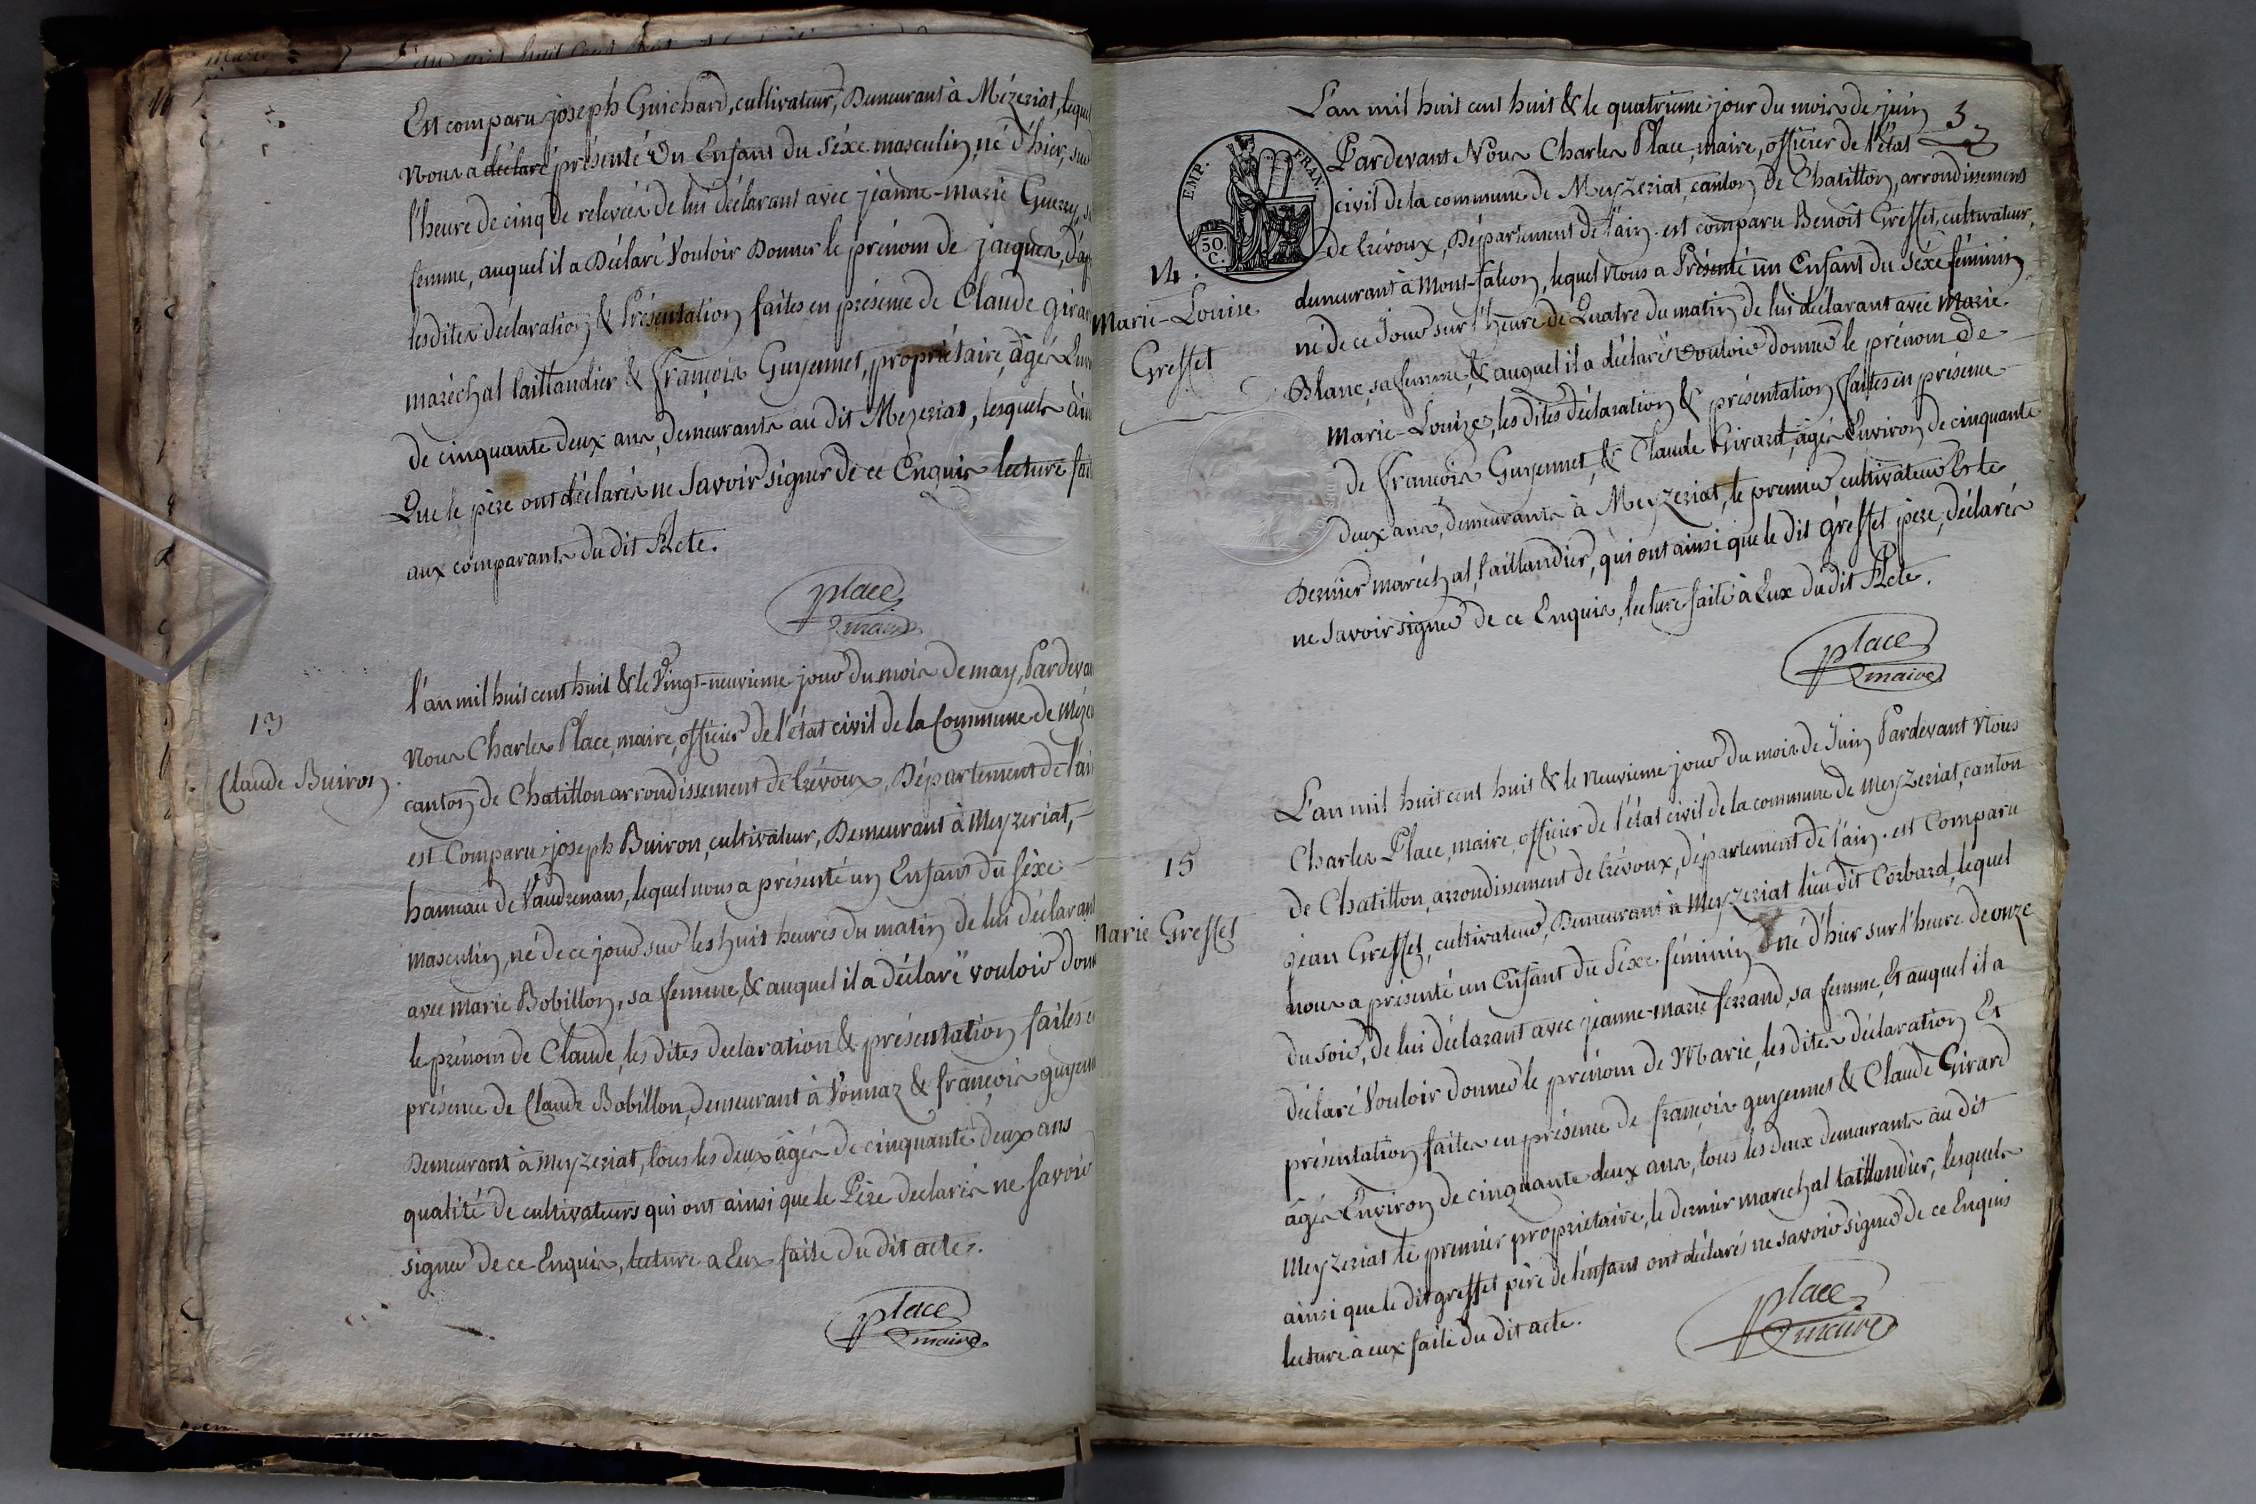 Est comparu joseph Guichard, cultivateur, Demeurant à Mézeriat, lequel
Nous a déclaré présenté Un Enfant du séxe masculin, né d'hier, sur
l'heure de cinq de relevée de lui déclarant avec jeanne-marie Guerry, sa
femme, auquel il a Déclaré Vouloir Donner le prénom de jacques,
lesdites declaration & Présentation faites en présence de Claude Girard
maréchal taillandier & françois Guyennet, propriétaire, âgés
de cinquante deux ans, demeurants au dit Mezeriat, lesquels
Que le père ont déclarés ne Savoir signer de ce Enquis lecture
aux comparants du dit Acte.
place
maire
13
Claude Buiron
l'an mil huit cent huit & le Vingt-neuvieme jour du mois de may, Pardevant
Nous Charles Place, maire, officier de l'état civil de la Commune de
canton de Chatillon arrondissement de trévoux, Département de l'ain
est Comparu joseph Buiron, cultivateur, Demeurant à Meyzeriat,
hameau de Vaudrenans, lequel nous a présenté un Enfant du séxe
masculin, né de ce jour sur les huit heures du matin de lui déclarant
avec marie Bobillon, sa femme, & auquel il a déclaré vouloir
le prénom de Claude, les dites declaration & présentation faites
présence de Claude Bobillon, demeurant à Vonnaz & françois
Demeurant à Meyzeriat, tous les deux âgés de cinquante deux ans
qualité de cultivateurs qui ont ainsi que le Père declarés ne savoir
signer de ce Enquis, lecture a Eux faite du dit acte.
place
maire
3
EMP. FRAN.
50.
C.
L'an mil huit cent huit & le quatrieme jour du mois de juin
Pardevant Nous Charles Place, maire, officier de l'état
civil de la commune de Meyzeriat, canton de Chatillon, arrondissement
de trévoux, Département de l'ain. est comparu Benoît Greffet, cultivateur,
demeurant à Mont-falcon, lequel Nous a Présenté un Enfant du Séxe féminin
né de ce Jour sur l'heure de Quatre du matin de lui déclarant avec Marie
Blanc, sa femme, & auquel il a déclaré vouloir donner le prénom de
Marie-Louize, les dites déclaration & présentation faites en présence
de françois Guyennet, & Claude Girard, âgés Environ de cinquante
deux ans, demeurants à Meyzeriat, le premier cultivateur Et le
Dernier maréchal, taillandier, qui ont ainsi que le dit greffet pere, déclarés
ne Savoir signer de ce Enquis, lecture faite à Eux du dit Acte.
14.
Marie-Louise
Greffet
place
maire
15
Marie Greffet
L'an mil huit cent huit & le Neuvieme jour du mois de Juin Pardevant Nous
Charles Place, maire, officier de l'état civil de la commune de Meyzeriat, canton
de Chatillon, arrondissement de trévoux, département de l'ain. est Comparu
jean Greffet, cultivateur, Demeurant à Meyzeriat lieu dit Corbard, lequel
nous a présenté un Enfant du Séxe féminin né d'hier sur l'heure de onze
du soir, de lui déclarant avec jeanne-marie ferrand, sa femme, Et auquel il a
déclaré Vouloir donner le prénom de Marie, les dites déclaration Et
présentation faites en présence de françois guyennet & Claude Girard
âgés Environ de cinquante deux ans, tous les deux demeurants au dit
Meyzeriat le premier propriétaire, le dernier marechal taillandier, lesquels
ainsi que le dit greffet père de l'enfant ont déclarés ne savoir signer de ce Enquis
lecture à eux faite du dit acte.
place
maire